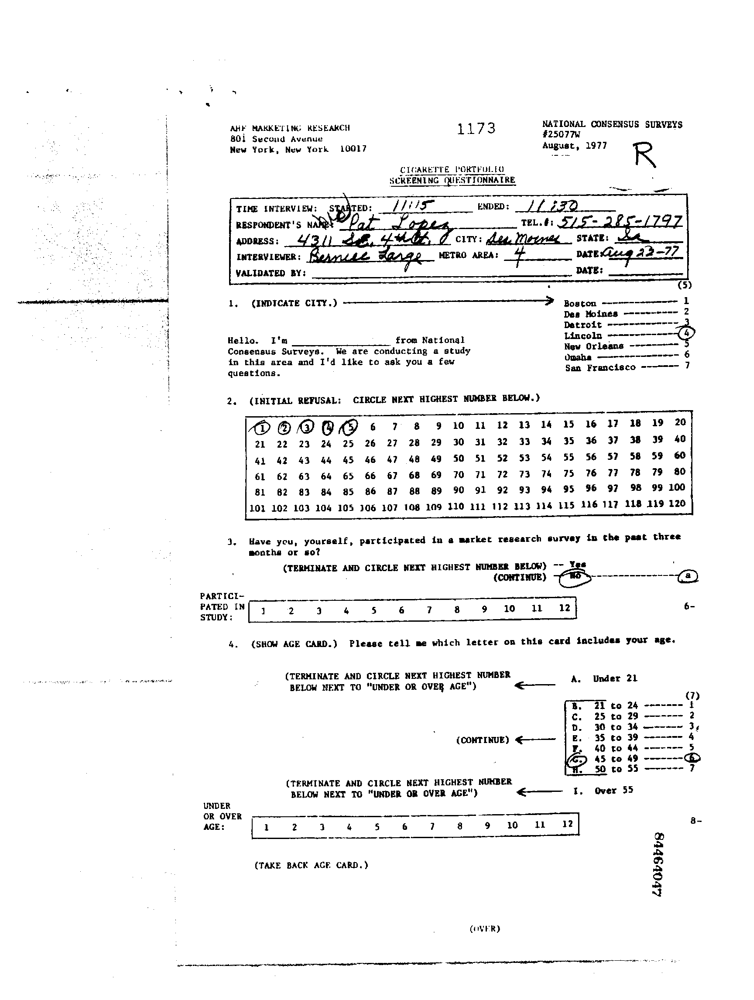 AHF MARKETING RESEARCH
801 Second Avenue
New York, New York 10017
1173
NATIONAL CONSENSUS SURVEYS
#25077W
August, 1977
R
CIGARETTE PORTFOLIO
SCREENING QUESTIONNAIRE
TIME INTERVIEW: STARTED: 11:15 ENDED: 11:30
RESPONDENT'S NAME: Pat Lopez TEL.#: 515-285-1797
ADDRESS: 4311 CITY: Des Moines STATE: Ia
INTERVIEWER: Bernise Large METRO AREA: 4 DATE: Aug 23-77
VALIDATED BY: DATE:
(5)
1. (INDICATE CITY.) Boston ---------- 1
Des Moines ---------- 2
Detroit ---------- 3
Lincoln ---------- 4
New Orleans ------- 5
Omaha ---------- 6
San Francisco ------- 7
Hello. I'm ______________ from National
Consensus Surveys. We are conducting a study
in this area and I'd like to ask you a few
questions.
2. (INITIAL REFUSAL: CIRCLE NEXT HIGHEST NUMBER BELOW.)
1 2 3 4 5 6 7 8 9 10 11 12 13 14 15 16 17 18 19 20
21 22 23 24 25 26 27 28 29 30 31 32 33 34 35 36 37 38 39 40
41 42 43 44 45 46 47 48 49 50 51 52 53 54 55 56 57 58 59 60
61 62 63 64 65 66 67 68 69 70 71 72 73 74 75 76 77 78 79 80
81 82 83 84 85 86 87 88 89 90 91 92 93 94 95 96 97 98 99 100
101 102 103 104 105 106 107 108 109 110 111 112 113 114 115 116 117 118 119 120
3. Have you, yourself, participated in a market research survey in the past three
months or so?
(TERMINATE AND CIRCLE NEXT HIGHEST NUMBER BELOW) -- Yes
(CONTINUE) -- No ---------- a
PARTICI-
PATED IN
STUDY:
1 2 3 4 5 6 7 8 9 10 11 12
6-
4. (SHOW AGE CARD.) Please tell me which letter on this card includes your age.
(TERMINATE AND CIRCLE NEXT HIGHEST NUMBER
BELOW NEXT TO "UNDER OR OVER AGE")
A. Under 21
(7)
B. 21 to 24 ------- 1
C. 25 to 29 ------- 2
D. 30 to 34 ------- 3
(CONTINUE) E. 35 to 39 ------- 4
F. 40 to 44 ------- 5
G. 45 to 49 ------- 6
H. 50 to 55 ------- 7
(TERMINATE AND CIRCLE NEXT HIGHEST NUMBER
BELOW NEXT TO "UNDER OR OVER AGE")
I. Over 55
UNDER
OR OVER
AGE:
1 2 3 4 5 6 7 8 9 10 11 12
8-
(TAKE BACK AGE CARD.)
84464047
(OVER)